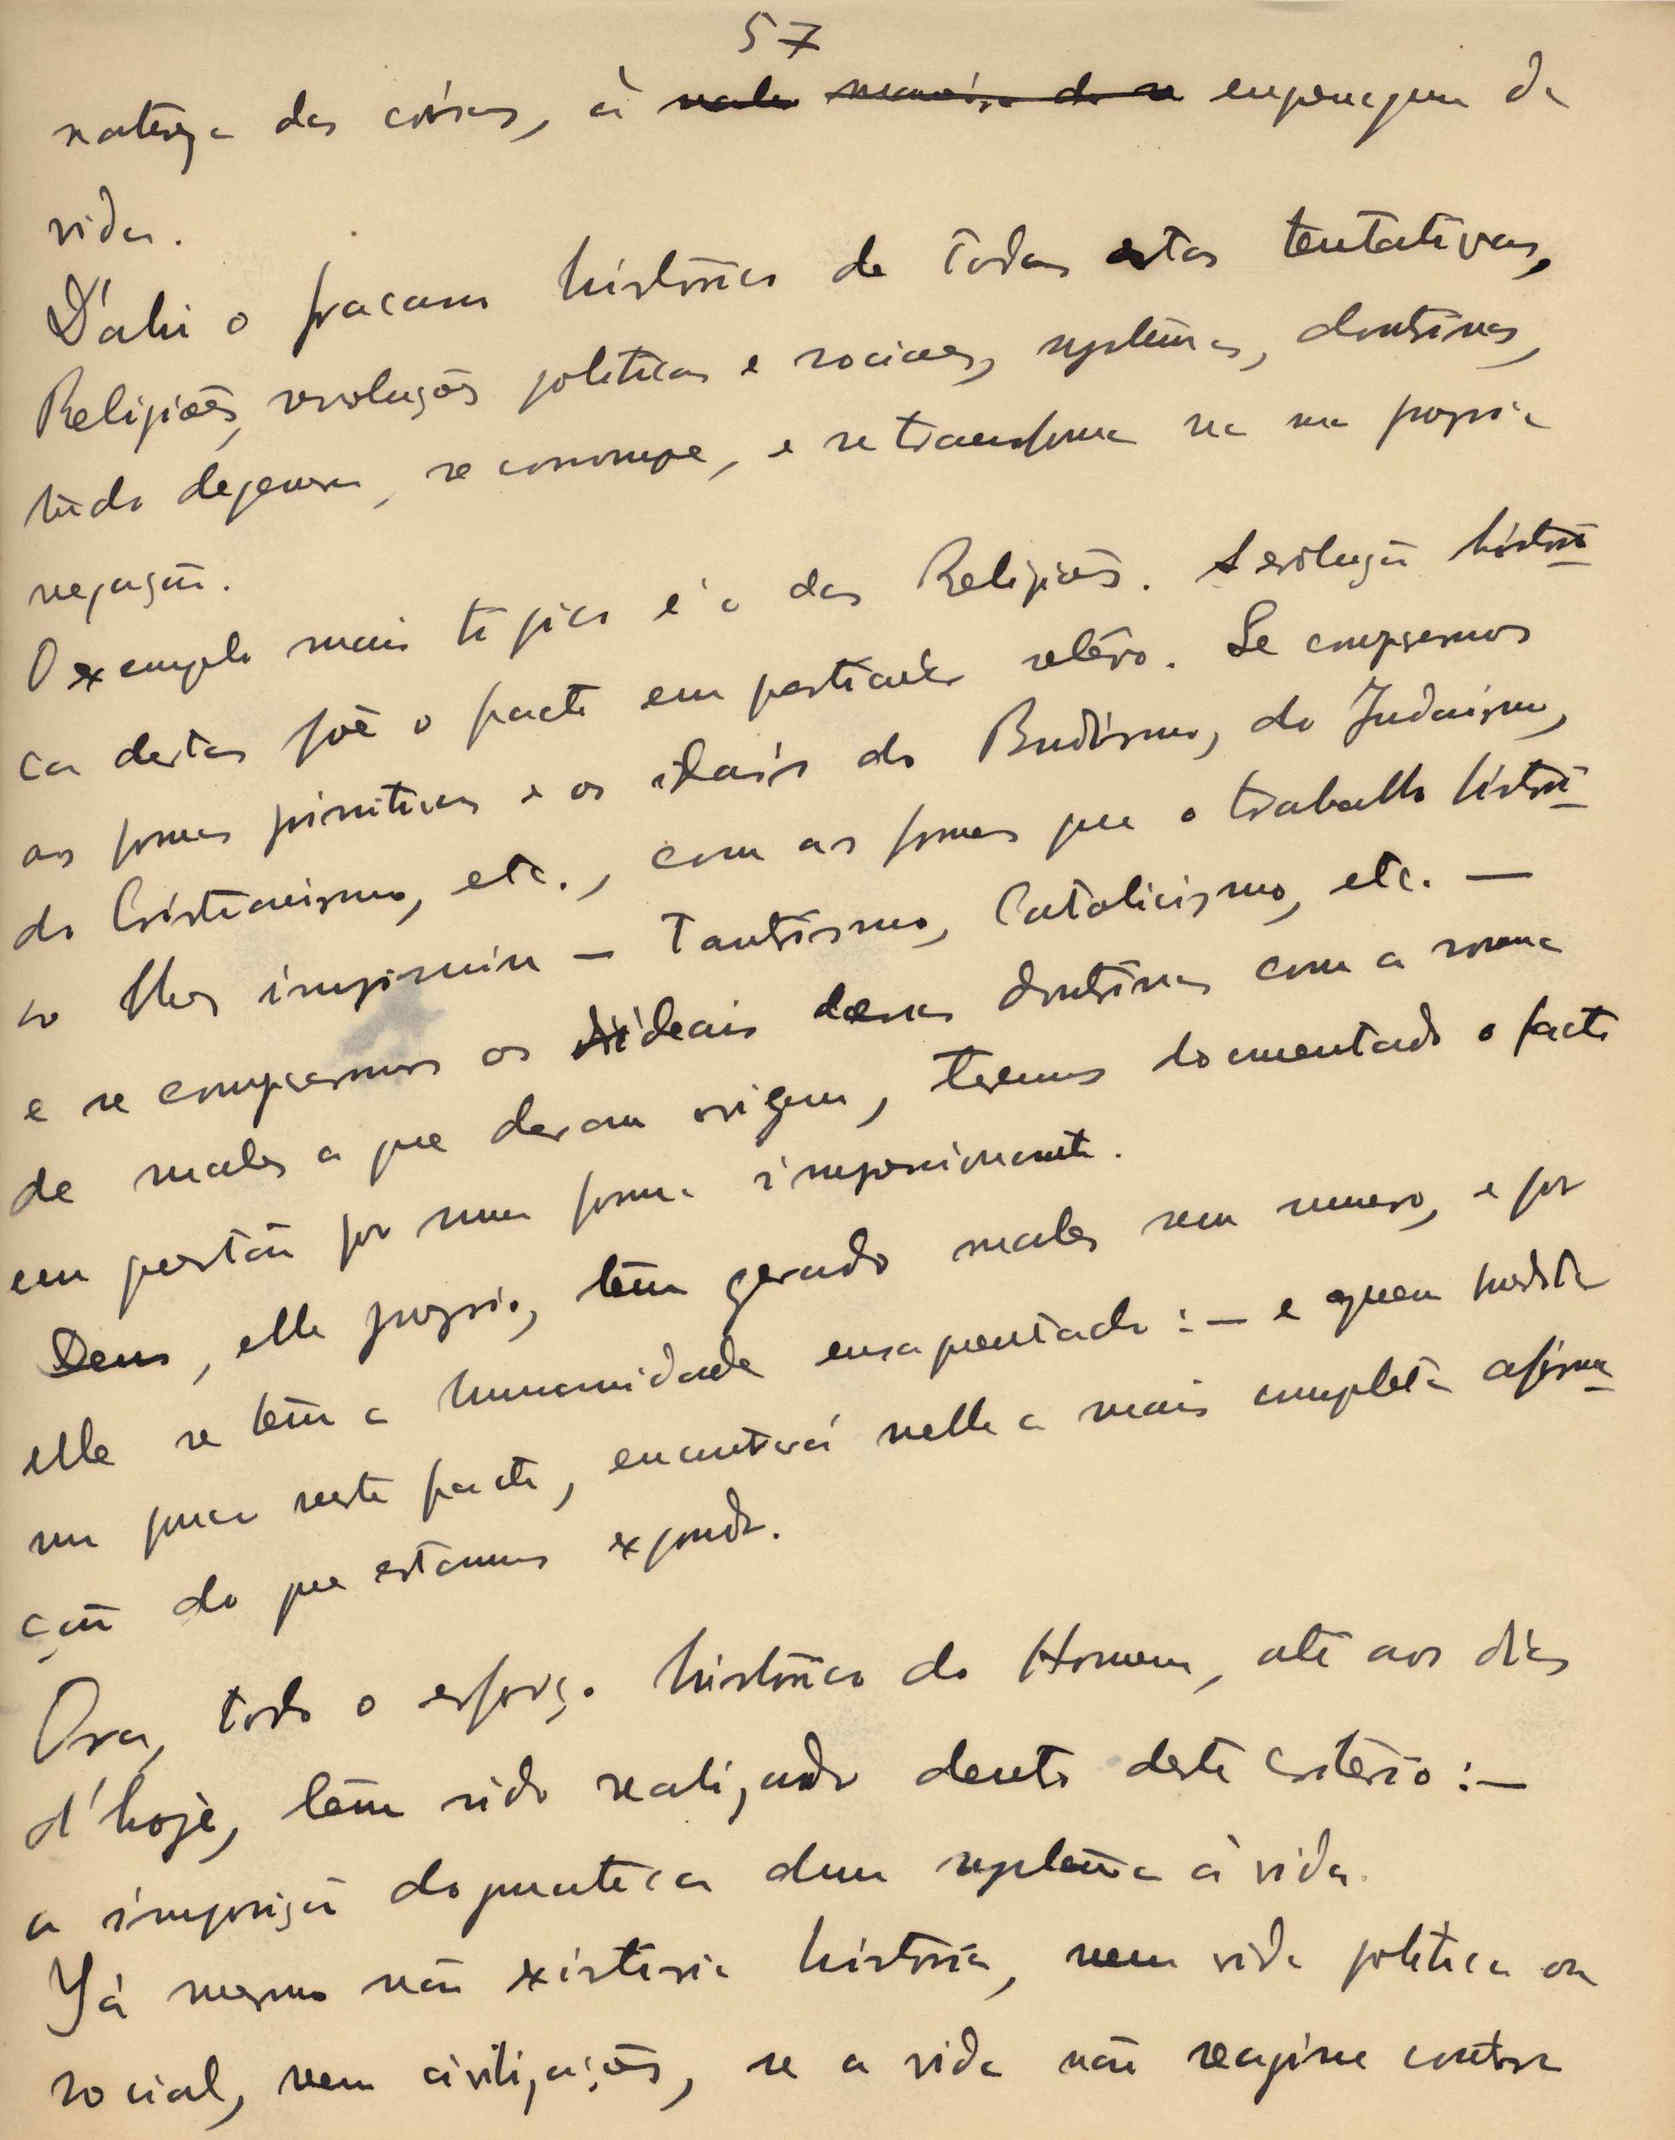 57
natureza das coisas, á engrenagem da
vida.
D'ahi o fracasso histórico de todas estas tentativas,
Religiões, revoluções politicas e sociaes, systemas, doutrinas,
tudo degenera, se corrompe, e se transforma na sua propria
negação.
O exemplo mais tipico é o das Religiões. A evolução histori
ca destas põe o facto em particular relêvo. Se compararmos
as formas primitivas e os ideais do Budismo, do Judaismo,
do Cristianismo, etc., com as formas que o trabalho histori
co lhes imprimiu — Tantrismo, Catolicismo, etc. —
e se compararmos os ideais dessas doutrinas com a soma
de males a que deram origem, teremos documentado o facto
em questão por uma forma impressionante.
Deus, elle proprio, têm gerado males sem numero, e por
elle se têm a humanidade ensanguentado: — e quem medite
um pouco neste facto, encontrará nelle a mais completa afirma
ção do que estamos expondo.
Ora, todo o esforço histórico do Homem, até aos dias
d'hoje, têm sido realizado dentro deste critério: —
a imposição dogmatica dum systema á vida.
Já mesmo não existiria história, nem vida politica ou
social, nem civilizações, se a vida não reagisse contra